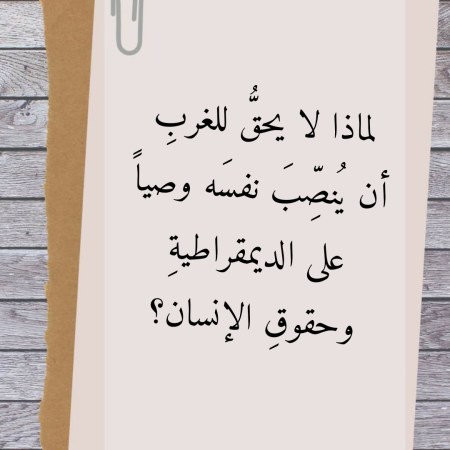 لماذا لا يحقُّ للغربِ
أن يُنصِّبَ نفسَه وصياً
على الديمقراطيةِ
وحقوقِ الإنسان؟